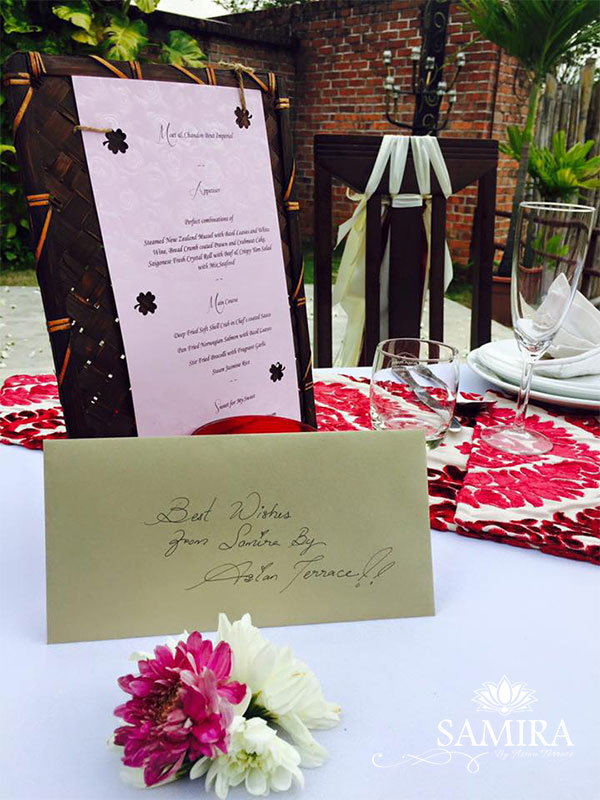 Moet & Chandon Brut Imperial
Appetiser
Perfect combinations of
Steamed New Zealand Mussel with Basil Leaves and White
Wine, Bread Crumb coated Prawn and Crabmeat Cake,
Saigonese Fresh Crystal Roll with Beef & Crispy Yam Salad
with Mix Seafood
Main Course
Deep Fried Soft Shell Crab in Chef's coated Sauce
Pan Fried Norwegian Salmon with Basil Leaves
Stir Fried Broccoli with Fragrant Garlic
Steam Jasmine Rice
Sweet for My Sweet
Best Wishes
From Samira By
Asian Terrace!!
SAMIRA
By Asian Terrace